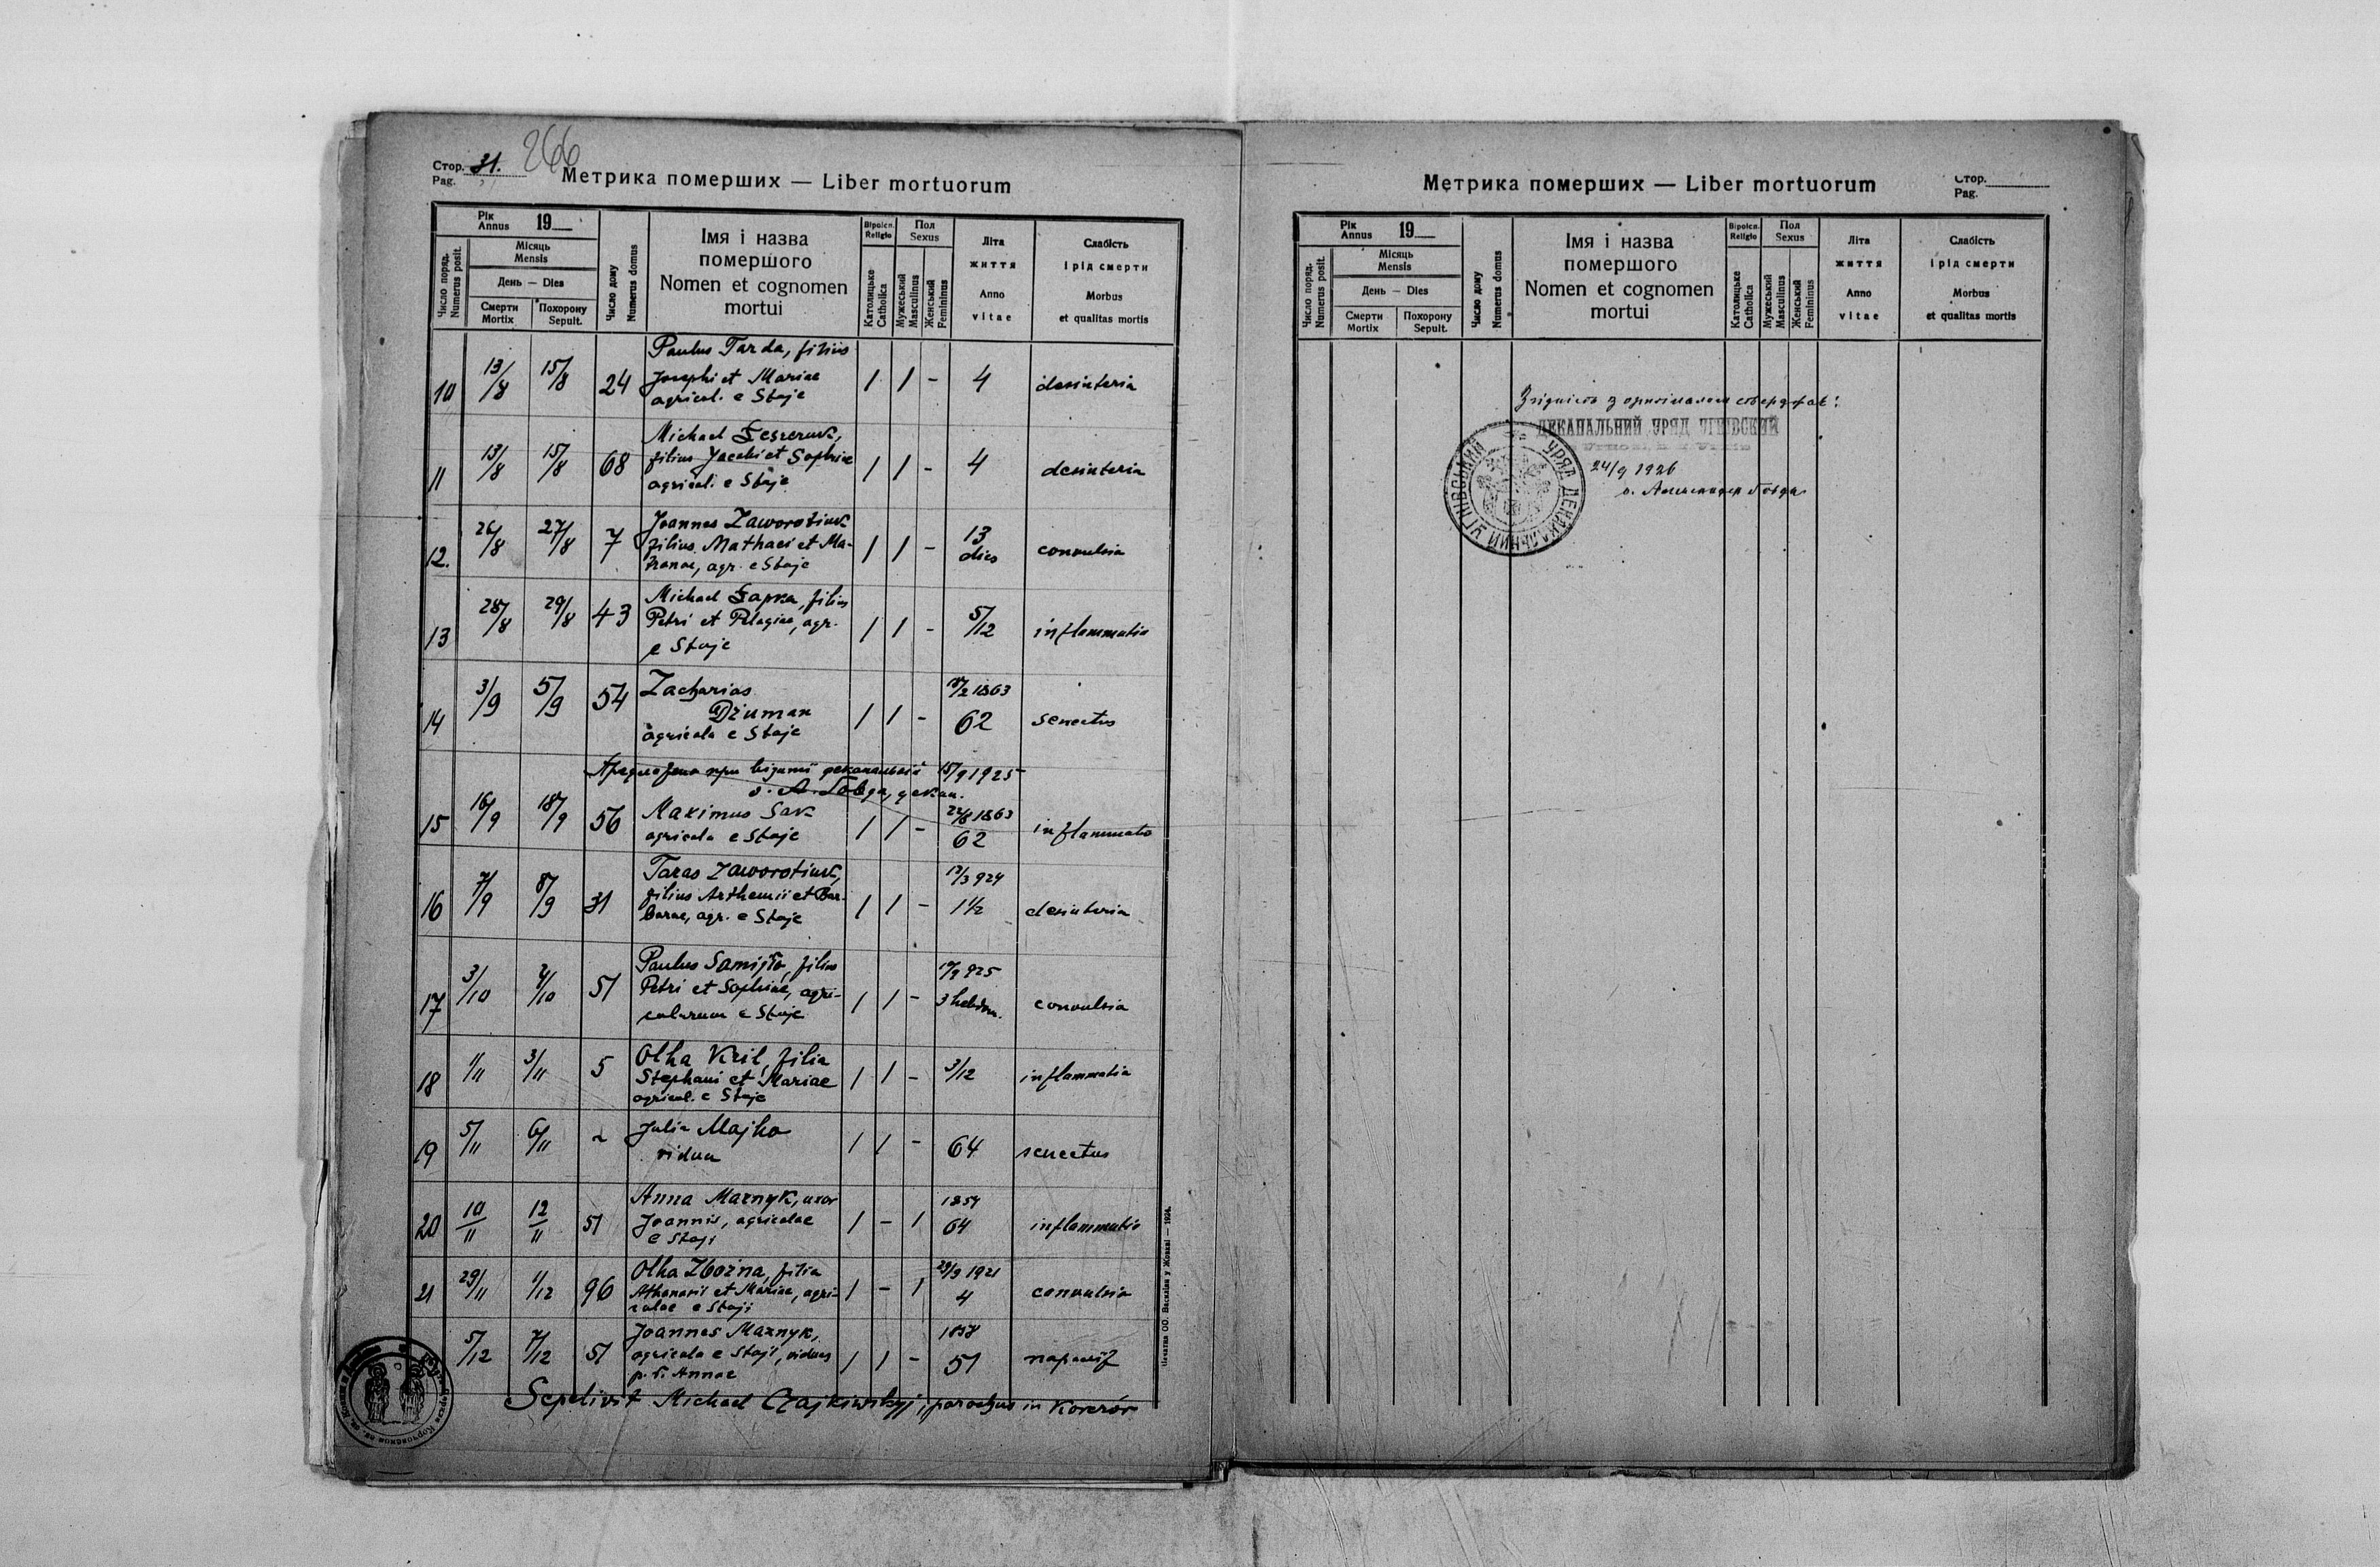 Стор. 31. 266
Pag.
Метрика померших — Liber mortuorum
Рік
Annus 19
Місяць
Mensis
День — Dies
Смерти
Mortix
Похорону
Sepult.
Число поряд.
Numerus posit.
Число дому
Numerus domus
Імя і назва
помершого
Nomen et cognomen
mortui
Віроісп.
Religio
Католицьке
Catholica
Пол
Sexus
Мужеський
Masculinus
Женський
Femininus
Літа
життя
Anno
vitae
Слабість
і рід смерти
Morbus
et qualitas mortis
10 13/8 15/8 24 Paulus Tarda, filius
Josephi et Mariae
agricol. e Staje
1 1 - 4 desinteria
11 13/8 15/8 68 Michael
filius Jacobi et Sophiae
agricol. e Staje
1 1 - 4 desinteria
12. 26/8 27/8 7 Joannes Zaworotiuk
filius Mathaei et Ma-
tronae, agr. e Staje
1 1 - 13
dies convulsia
13 28/8 29/8 43 Michael Łapka, filius
Petri et Pelagiae, agr.
e Staje
1 1 - 5/12 inflammatio
14 3/9 5/9 54 Zacharias
Dżuman
agricola e Staje
1 1 - /2 1863
62 senectus
Предложено при візитації деканальній 15/9 1925
о. А. Говда, декан.
15 16/9 18/9 56 Maximus Sak
agricola e Staje
1 1 - 22/8 1863
62 inflammatio
16 7/9 8/9 31 Taras Zaworotiuk,
filius Arthemii et Bar-
barae, agr. e Staje
1 1 - /3 924
1 1/2 desinteria
17 3/10 4/10 51 Paulus Samiło, filius
Petri et Sophiae, agri-
colarum e Staje
1 1 - /9 925
3 hebdom. convulsia
18 1/11 3/11 5 Olha Kril, filia
Stephani et Mariae
agricol. e Staje
1 1 - 3/12 inflammatia
19 5/11 6/11 Julia Majko
vidua
1 1 - 64 senectus
20 10/11 12/11 51 Anna Maznyk, uxor
Joannis, agricolae
e Staji
1 - 1 64 inflammatio
21 29/11 1/12 96 Olha Zbożna, filia
Athanasii et Mariae, agri-
colae e Staji
1 - 1 29/9 1921
4 convulsia
5/12 7/12 51 Joannes Maznyk,
agricola e Staji, viduus
p. d. Annae
1 1 - 51
Sepelivit Michael Czajkiwskyj, parochus in Korczów
Печатня ОО. Василіян у Жовкві — 1924.
Метрика померших — Liber mortuorum
Стор.
Pag.
Рік
Annus 19
Місяць
Mensis
День — Dies
Смерти
Mortix
Похорону
Sepult.
Число поряд.
Numerus posit.
Число дому
Numerus domus
Імя і назва
помершого
Nomen et cognomen
mortui
Віроісп.
Religio
Католицьке
Catholica
Пол
Sexus
Мужеський
Masculinus
Женський
Femininus
Літа
життя
Anno
vitae
Слабість
і рід смерти
Morbus
et qualitas mortis
Згідність з оригіналом стверджає:
ДЕКАНАЛЬНИЙ УРЯД УГНІВСКИЙ
УРЯД ДЕКАНАЛЬНИЙ УГНІВСЬКИЙ
24/9 1926
о. Александер Говда